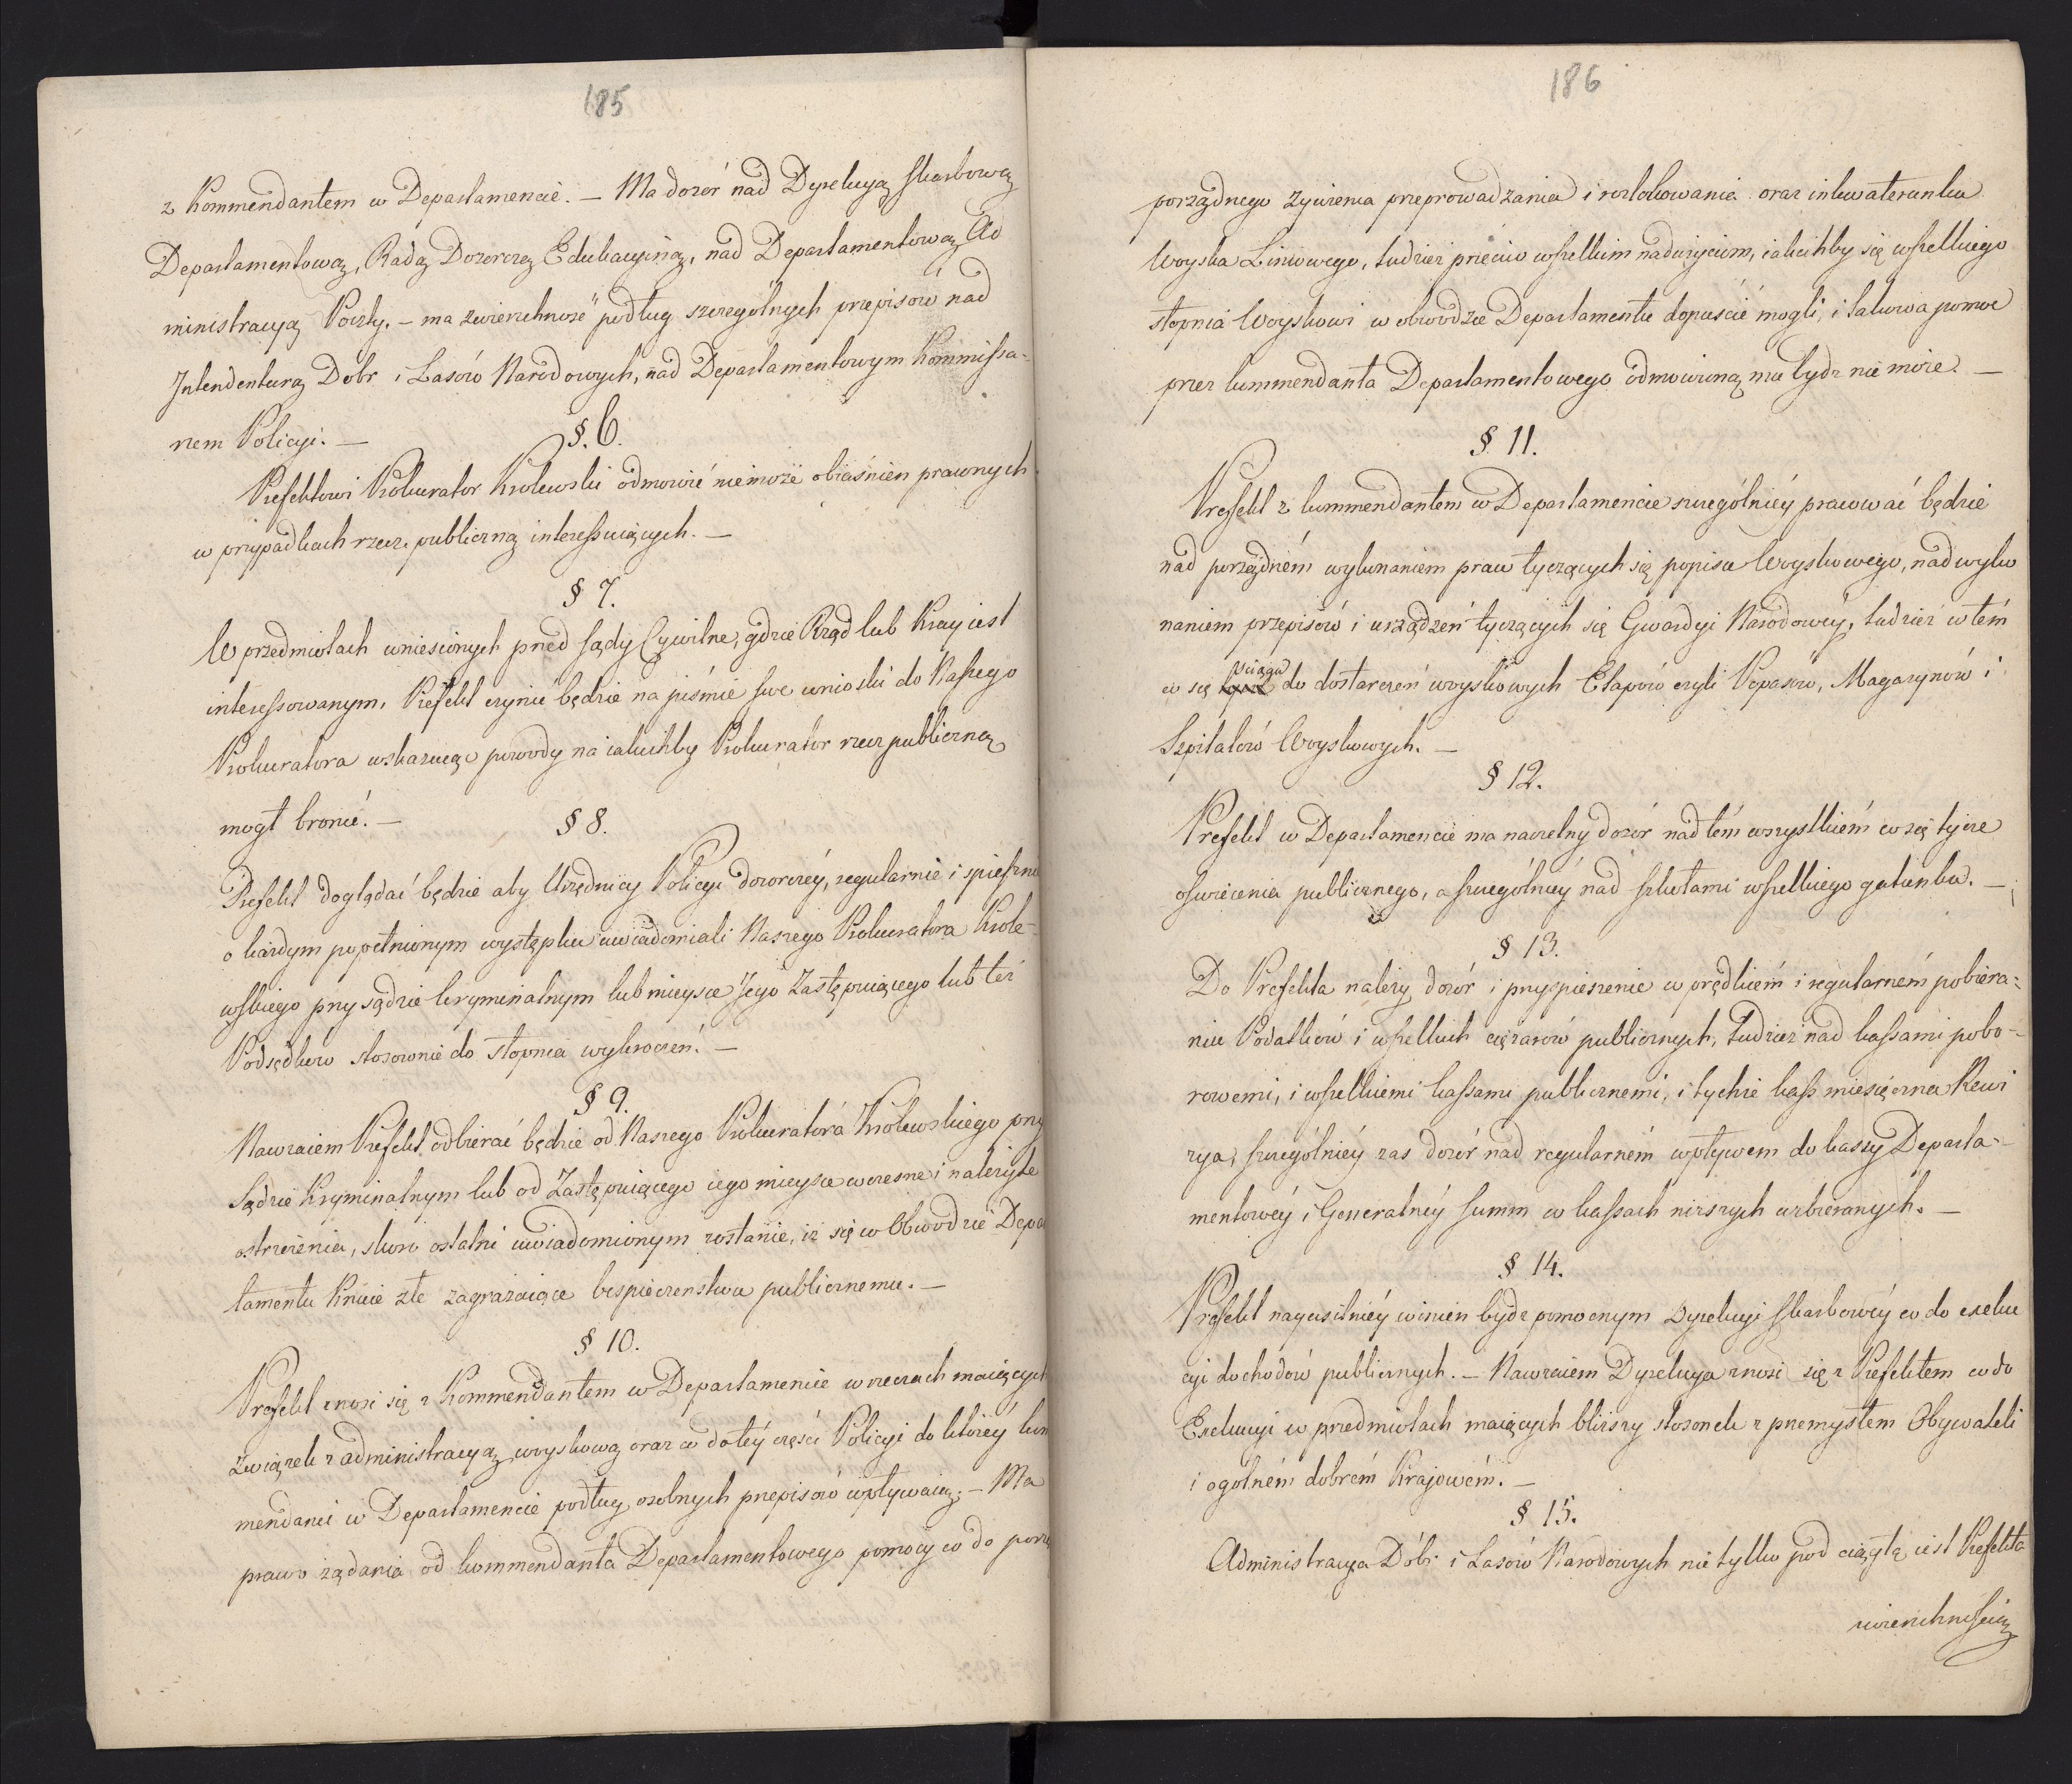 185
z Kommendantem w Departamencie. – Ma dozór nad Dyrekcyą Skarbową
Departamentową, Radą Dozorczą Edukacyiną, nad Departamentową Ad
ministracyą Poczty. – ma zwierzchność podług szczególnych przepisów nad
Intendenturą Dobr i Lasów Narodowych, nad Departamentowym Kommissa-
rzem Policyi. –
§. 6.
Prefektowi Prokurator Krolewski odmowić niemoże obiaśnien prawnych
w przypadkach rzecz publiczną interessuiących. –
§ 7.
W przedmiotach wniesionych przed Sądy Cywilne, gdzie Rząd lub Kray iest
interessowanym, Prefekt czynić będzie na piśmie swe wnioski do Naszego
Prokuratora wskazuiąc powody na iakichby Prokurator rzecz publiczną
mogł bronić. –
§ 8.
Prefekt doglądać będzie aby Urzędnicy Policyi dozorczéy, regularnie i spieszni
o każdym popełnionym występku uwiadomiali Naszego Prokuratora Krole-
wskiego przy sądzie kryminalnym lub mieysce Jego Zastępuiącego lub też
Podsędków stosownie do stopnia wykroczeń. –
§ 9.
Nawzaiem Prefekt odbierać będzie od Naszego Prokuratora Krolewskiego przy
Sądzie Kryminalnym lub od Zastępuiącego iego mieysce wczesne i należyte
ostrzeżenia, skoro ostatni uwiadomionym zostanie, iż się w Obwodzie Depar
tamentu knuie złe zagrażaiące bespieczeństwu publicznemu. –
§ 10.
Prefekt znosi się z Kommendantem w Departamencie w rzeczach maiących
związek z administracyą woyskową oraz co do téy części Policyi do któréy kom
mendanci w Departamencie podług osobnych przepisów wpływaią. – Ma
prawo żądania od kommendanta Departamentowego pomocy co do porzą
186
porządnego żywienia przeprowadzania i rozlokowania oraz inkwaterunku
Woyska Liniowego, tudzież przeciw wszelkim nadużyciom, iakichby się wszelkiego
stopnia Woyskowi w obwodzie Departamentu dopuścić mogli, i takowa pomoc
przez kommendanta Departamentowego odmowioną mu bydz nie może. –
§ 11.
Prefekt z kommendantem w Departamencie szczególniéy pracować będzie
nad porządném wykonaniem praw tyczących się popisu Woyskowego, nad wyko
naniem przepisów i urządzeń tyczących się Gwardyi Narodowéy, tudzież w tém
co się ściąga do dostarczeń woyskowych Etapów czyli Popasów, Magazynów i
Szpitalów Woyskowych. –
§ 12.
Prefekt w Departamencie ma naczelny dozór nad tém wszystkiém co się tycze
oswiecenia publicznego, a szczególniéy nad szkołami wszelkiego gatunku. –
§ 13.
Do Prefekta należy dozór i przyspieszenie w prędkiém i regularném pobiera-
niu Podatków i wszelkich ciężarów publicznych, tudzież nad kassami pobo-
rowemi, i wszelkiemi kassami publicznemi, i tychże kass miesięczna Rewi
zya, szczególniéy zas dozór nad regularném wpływem do kassy Departa-
mentowéy i Generalnéy summ w kassach niższych uzbieranych. –
§ 14.
Prefekt nayusilniéy winien bydz pomocnym Dyrekcyi Skarbowéy co do exeku
cyi dochodów publicznych. – Nawzaiem Dyrekcya znosi się z Prefektem co do
Exekucyi w przedmiotach maiących bliższy stosonek z przemysłem Obywateli
i ogólném dobrém Krajowém. –
§ 15.
Administracya Dóbr i Lasów Narodowych nie tylko pod ciągłą iest Prefekta
zwierzchnością